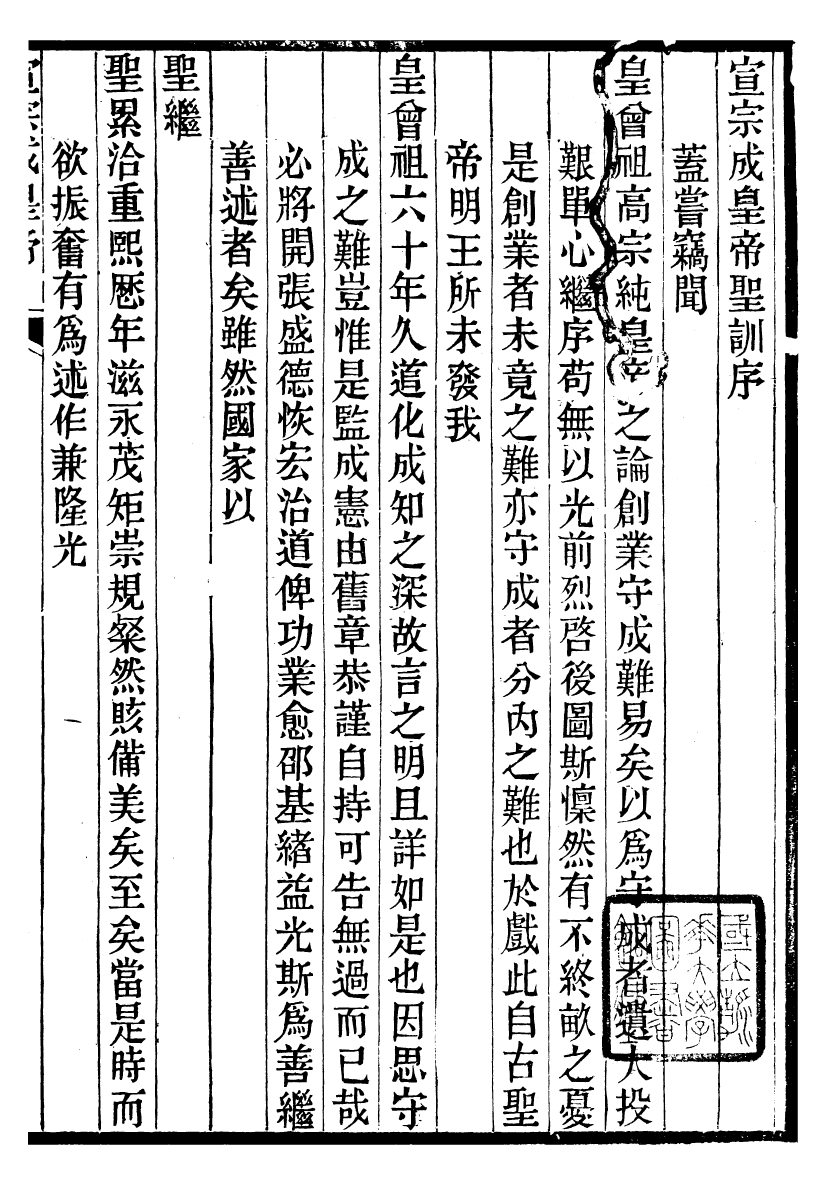 宣宗成皇帝聖訓序
蓋嘗竊聞
皇曾祖高宗純皇帝之論創業守成難易矣以爲守成者遺大投
艱單心繼序苟無以光前烈啓後圖斯懍然有不終畝之憂
是創業者未竟之難亦守成者分內之難也於戲此自古聖
帝明王所未發我
皇曾祖六十年久道化成知之深故言之明且詳如是也因思守
成之難豈惟是監成憲由舊章恭謹自持可告無過而已哉
必將開張盛德恢宏治道俾功業愈邵基緒益光斯爲善繼
善述者矣雖然國家以
聖繼
聖累洽重熙厯年滋永茂矩崇規粲然賅備美矣至矣當是時而
欲振奮有爲述作兼隆光